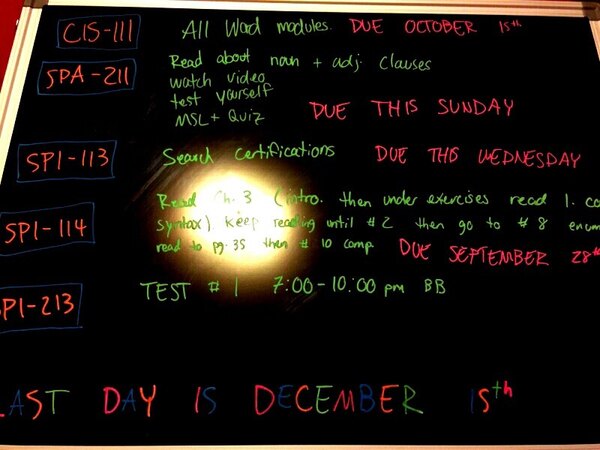 CIS-111 All Word modules. DUE OCTOBER 15th
SPA-211 Read about noun + adj. Clauses
watch video
test yourself
MSL + Quiz DUE THIS SUNDAY
SPI-113 Search certifications DUE THIS WEDNESDAY
SPI-114 Read Ch. 3 (intro. then under exercises read 1. co
syntax) keep reading until #2 then go to #8 enum
read to pg. 35 then #10 comp. DUE SEPTEMBER 28th
SPI-213 TEST #1 7:00-10:00 pm BB
LAST DAY IS DECEMBER 15th